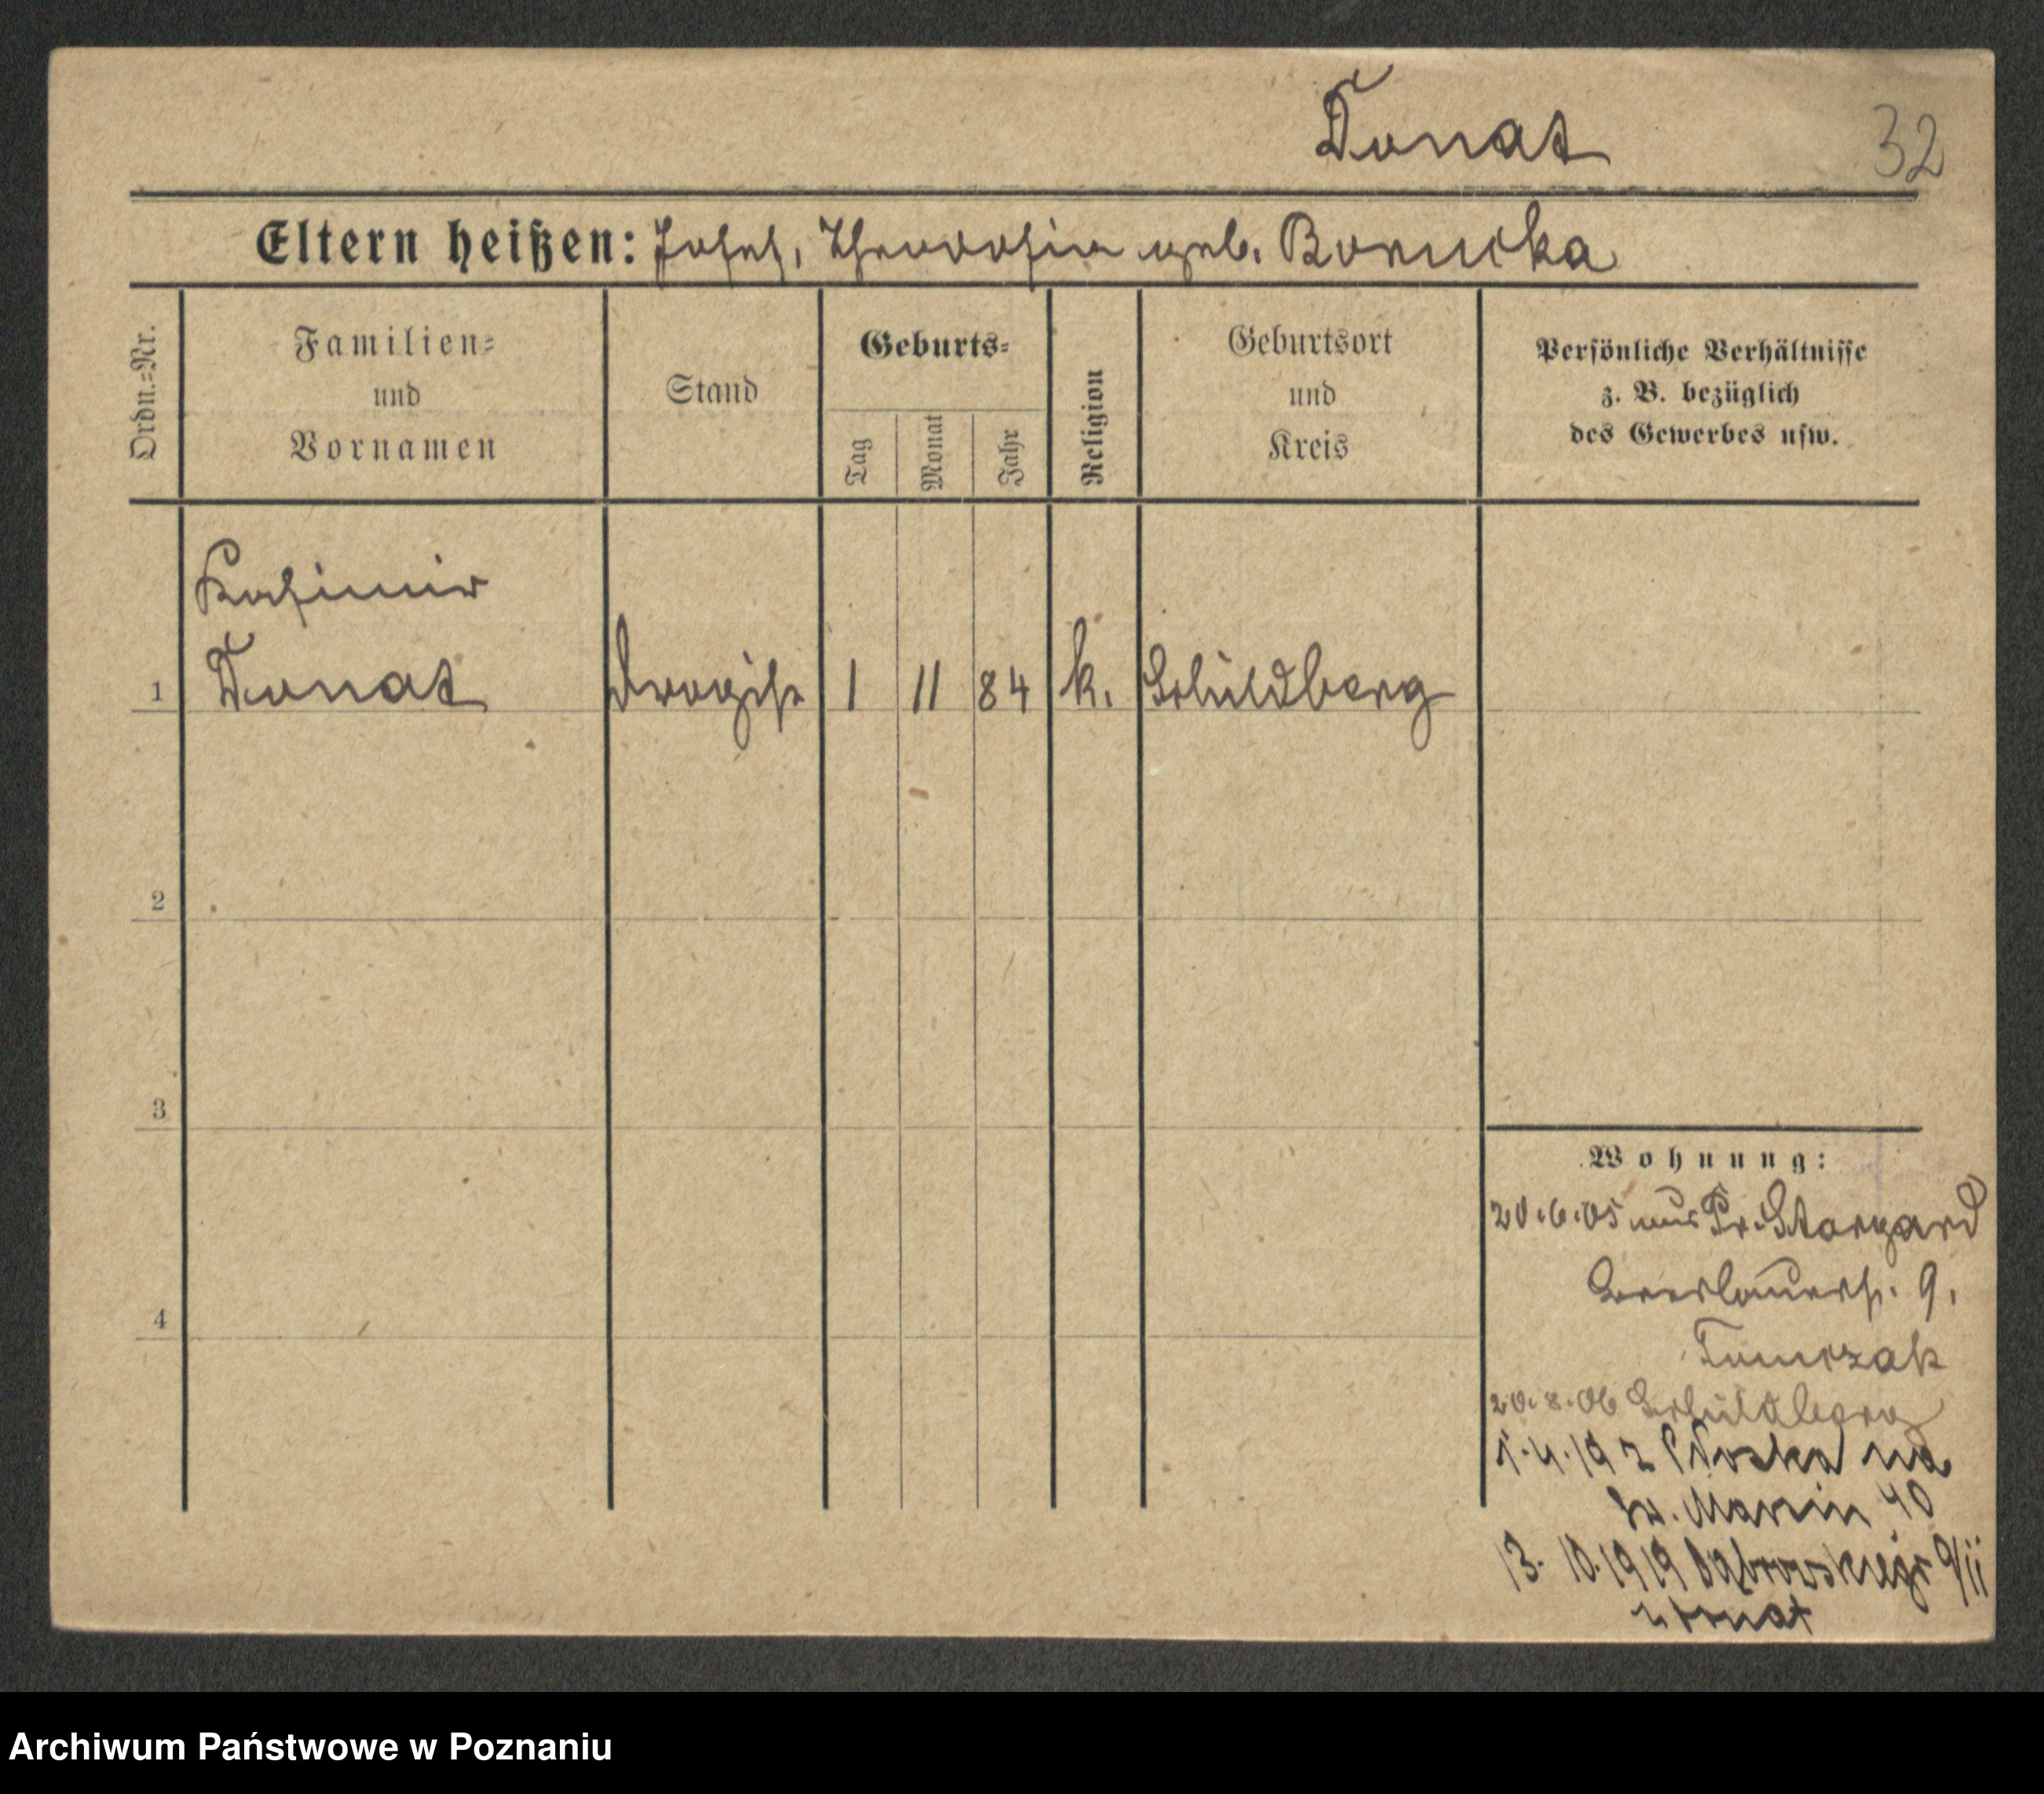 Donat
32
Eltern heißen: Josef, Theodosia geb. Borucka
Ordn.=Nr.
Familien=
und
Vornamen
Stand
Geburts=
Tag
Monat
Jahr
Religion
Geburtsort
und
Kreis
Persönliche Verhältnisse
z. B. bezüglich
des Gewerbes usw.
Kasimir
1 Donat Drogist 1 11 84 k. Schildberg
2
3
4
Wohnung:
20.6.05 aus Pr. Stargard
Breslauerst. 9.
Tomczak
20.8.06 Schildberg
1.4.19 z na
Św. Marcin 40
13. 10.1919 Dąbrowskiego
Archiwum Państwowe w Poznaniu